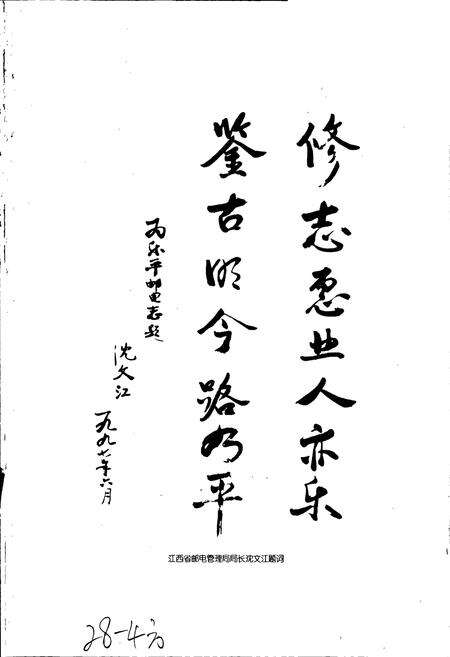 修志惠业人亦乐
鉴古明今路乃平
为乐平邮电志题
沈文江
一九九七年六月
江西省邮电管理局局长沈文江题词